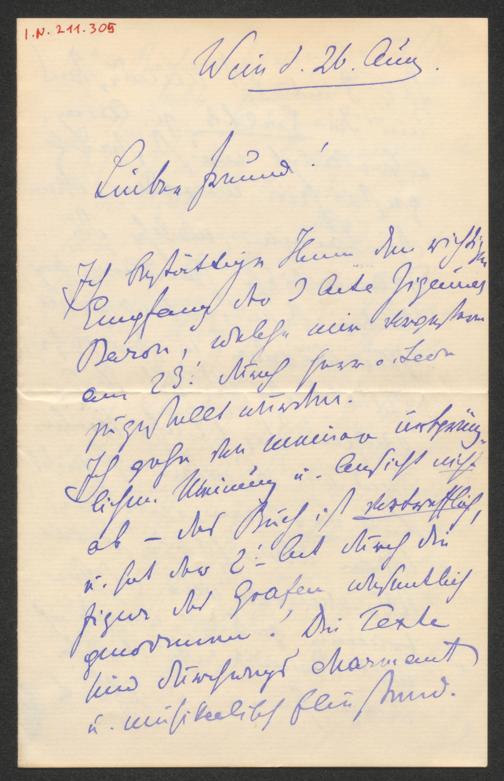 I.N. 211.305
Wien d. 26. Aug.
Lieber Freund!
Ich bestättige Ihnen den richtigen
Empfang der 3 Akte Zigeuner
Baron, welche mir
am 23. durch Herrn v. Leon
zugestellt wurden.
Ich gehe von meiner ursprüng-
lichen Meinung u. Ansicht nicht
ab – das Buch ist vortrefflich,
u. hat der 2te Akt durch die
Figur des Grafen wesentlich
gewonnen! Die Texte
sind durchwegs charmant
u. musikalisch fließend.